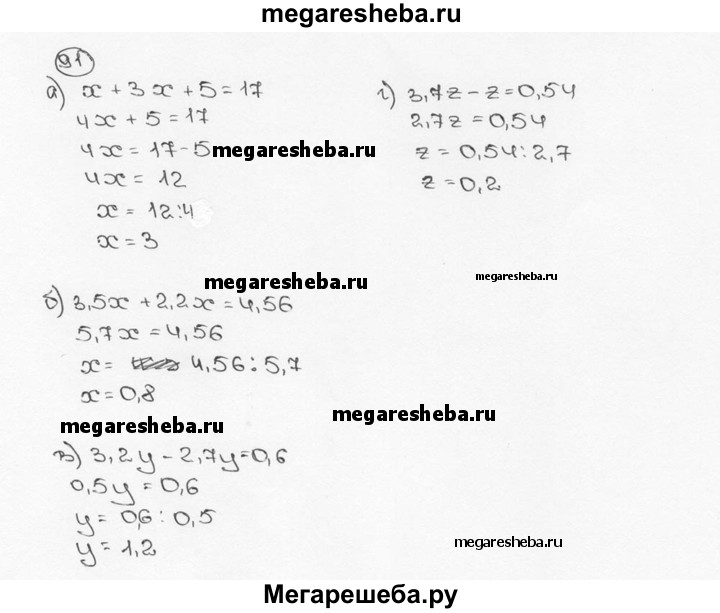 megaresheba.ru
91
а) x + 3x + 5 = 17
4x + 5 = 17
4x = 17 - 5
megaresheba.ru
4x = 12
x = 12:4
x = 3
г) 3,7z - z = 0,54
2,7z = 0,54
z = 0,54 : 2,7
z = 0,2
megaresheba.ru
megaresheba.ru
б) 3,5x + 2,2x = 4,56
5,7x = 4,56
x = 4,56 : 5,7
x = 0,8
megaresheba.ru
megaresheba.ru
в) 3,2y - 2,7y = 0,6
0,5y = 0,6
y = 0,6 : 0,5
y = 1,2
megaresheba.ru
Мегарешеба.ру